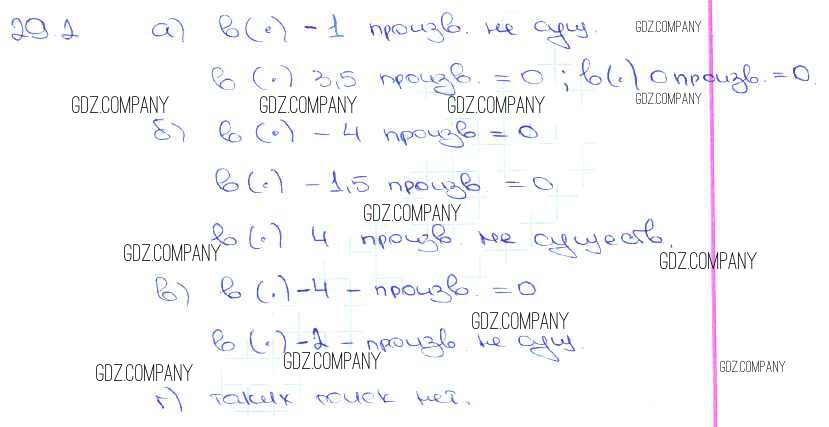 29.2 а) в(·) -1 произв. не сущ. GDZ.COMPANY
в (·) 3,5 произв. = 0 ; в(·) 0 произв. = 0.
GDZ.COMPANY GDZ.COMPANY GDZ.COMPANY GDZ.COMPANY
б) в (·) -4 произв = 0
в (·) -1,5 произв. = 0
GDZ.COMPANY
в (·) 4 произв. не существ.
GDZ.COMPANY GDZ.COMPANY
в) в (·) -4 - произв. = 0
GDZ.COMPANY
в (·) -2 - произв. не сущ.
GDZ.COMPANY GDZ.COMPANY GDZ.COMPANY
г) таких точек нет.